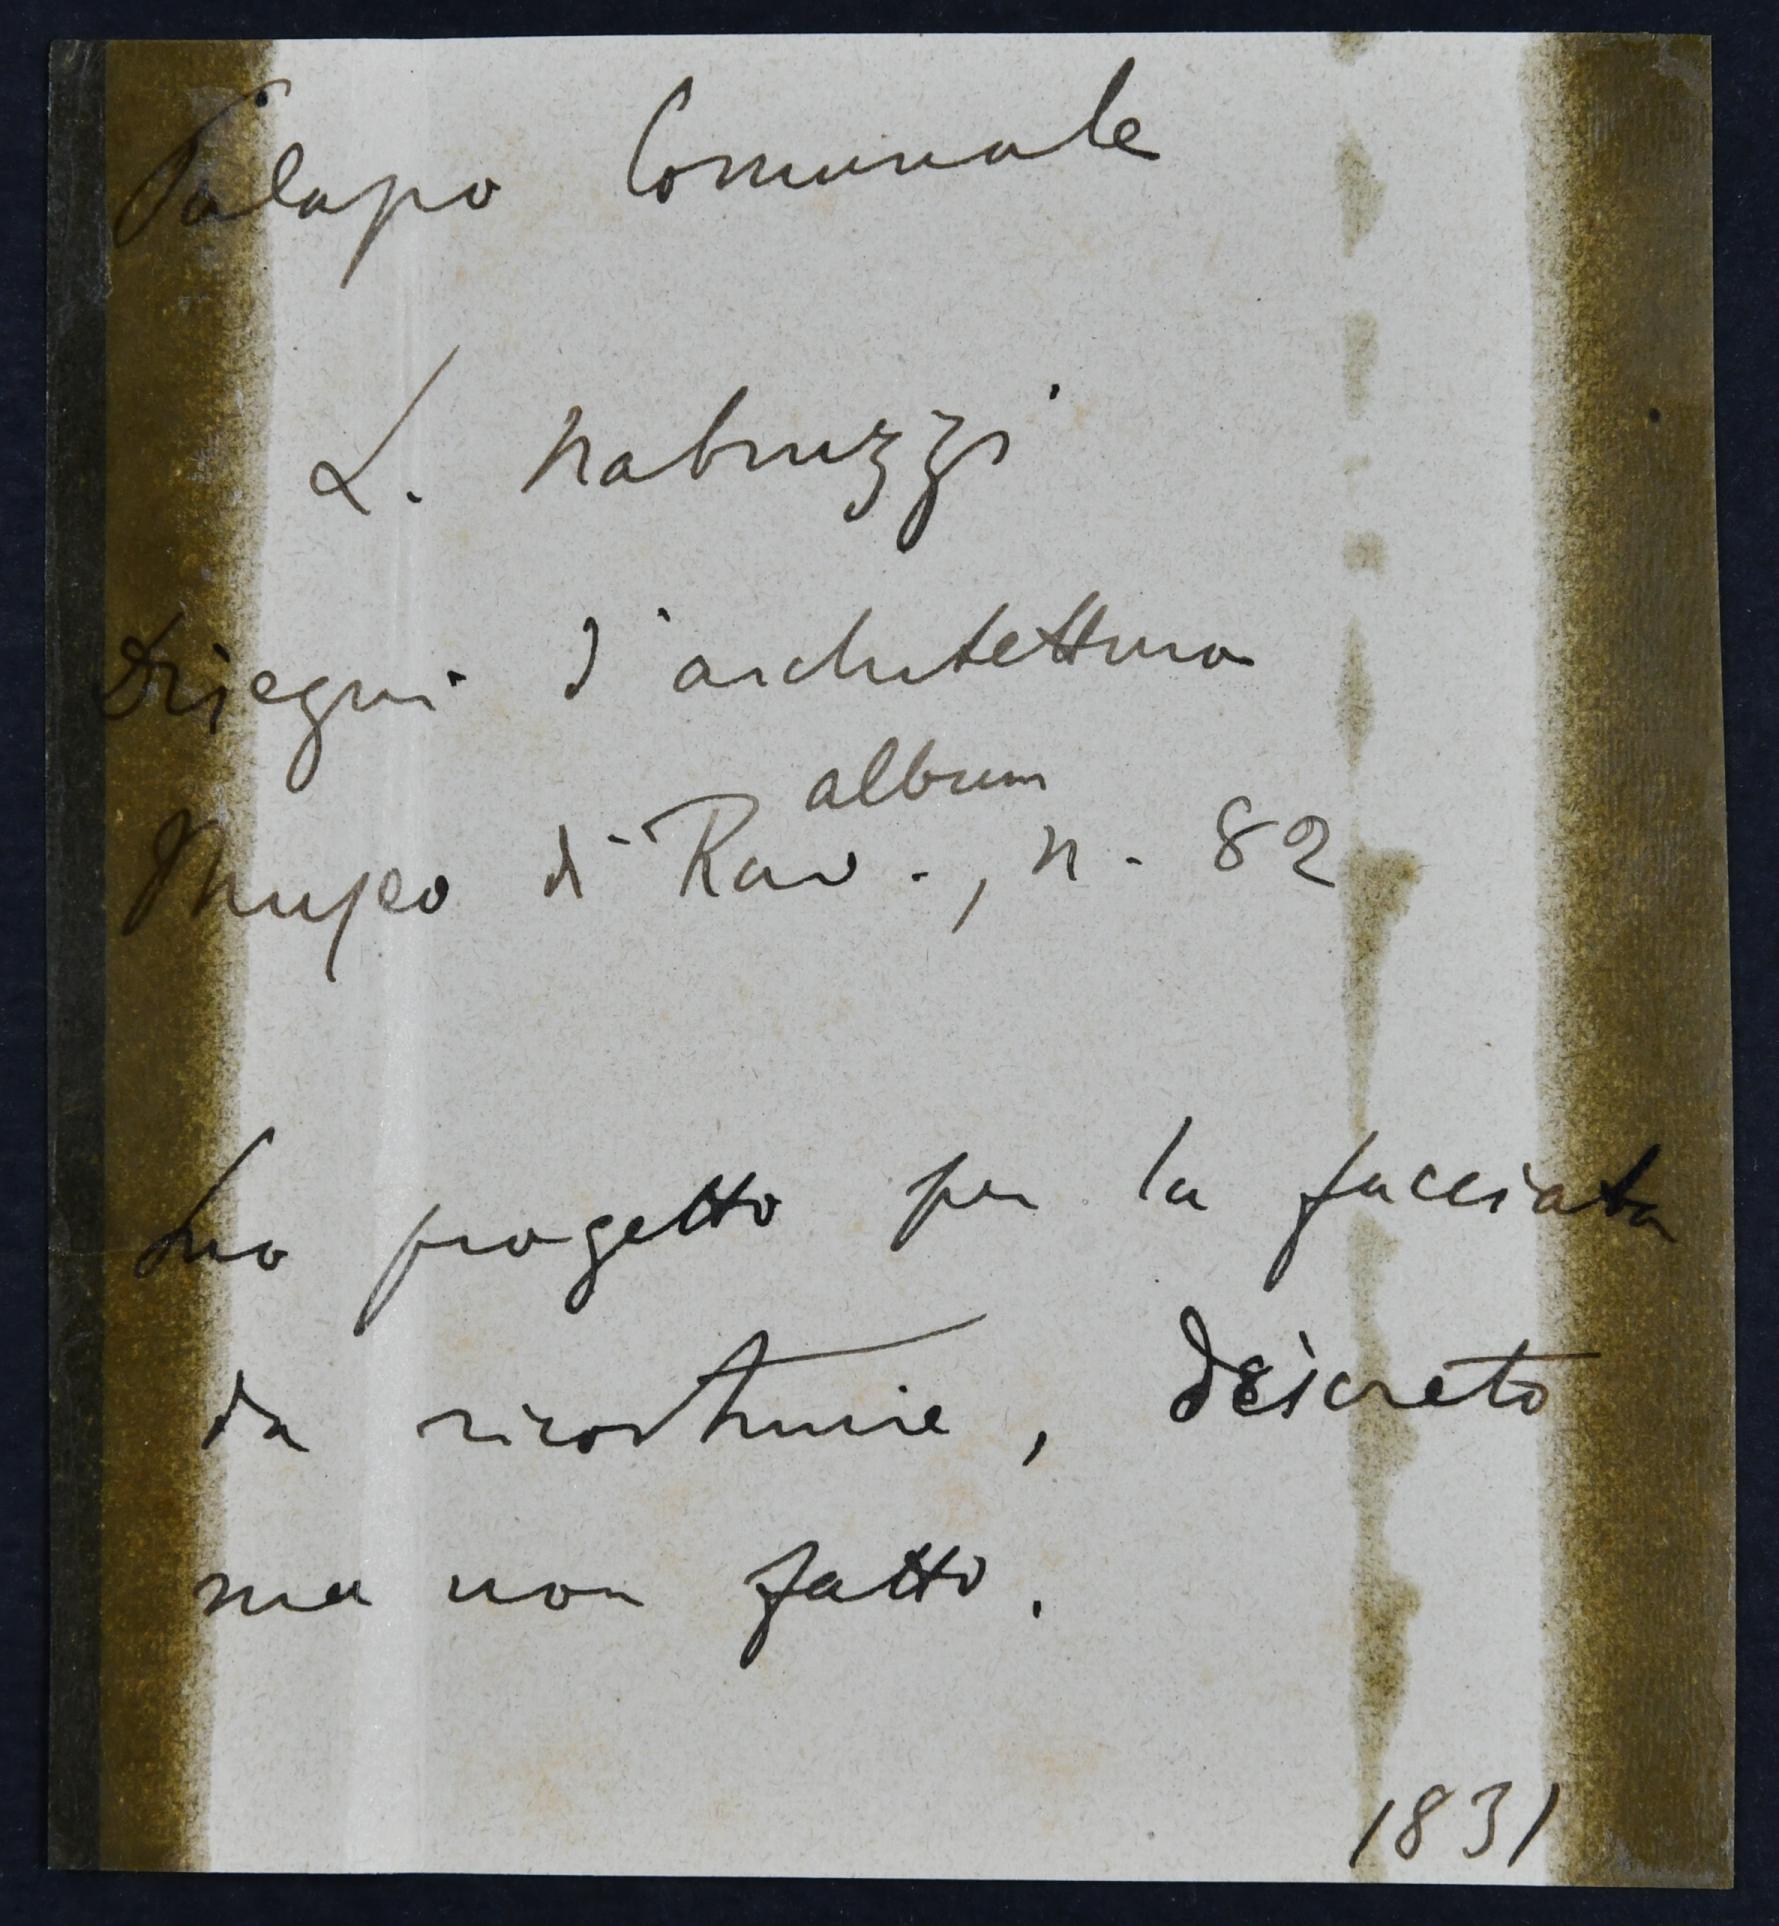 Palazzo Comunale
L. Nabruzzi
Disegni d'architettura
album
Museo di Rav., n. 82
Suo progetto per la facciata
da ricostruire, discreto
ma non fatto.
1831